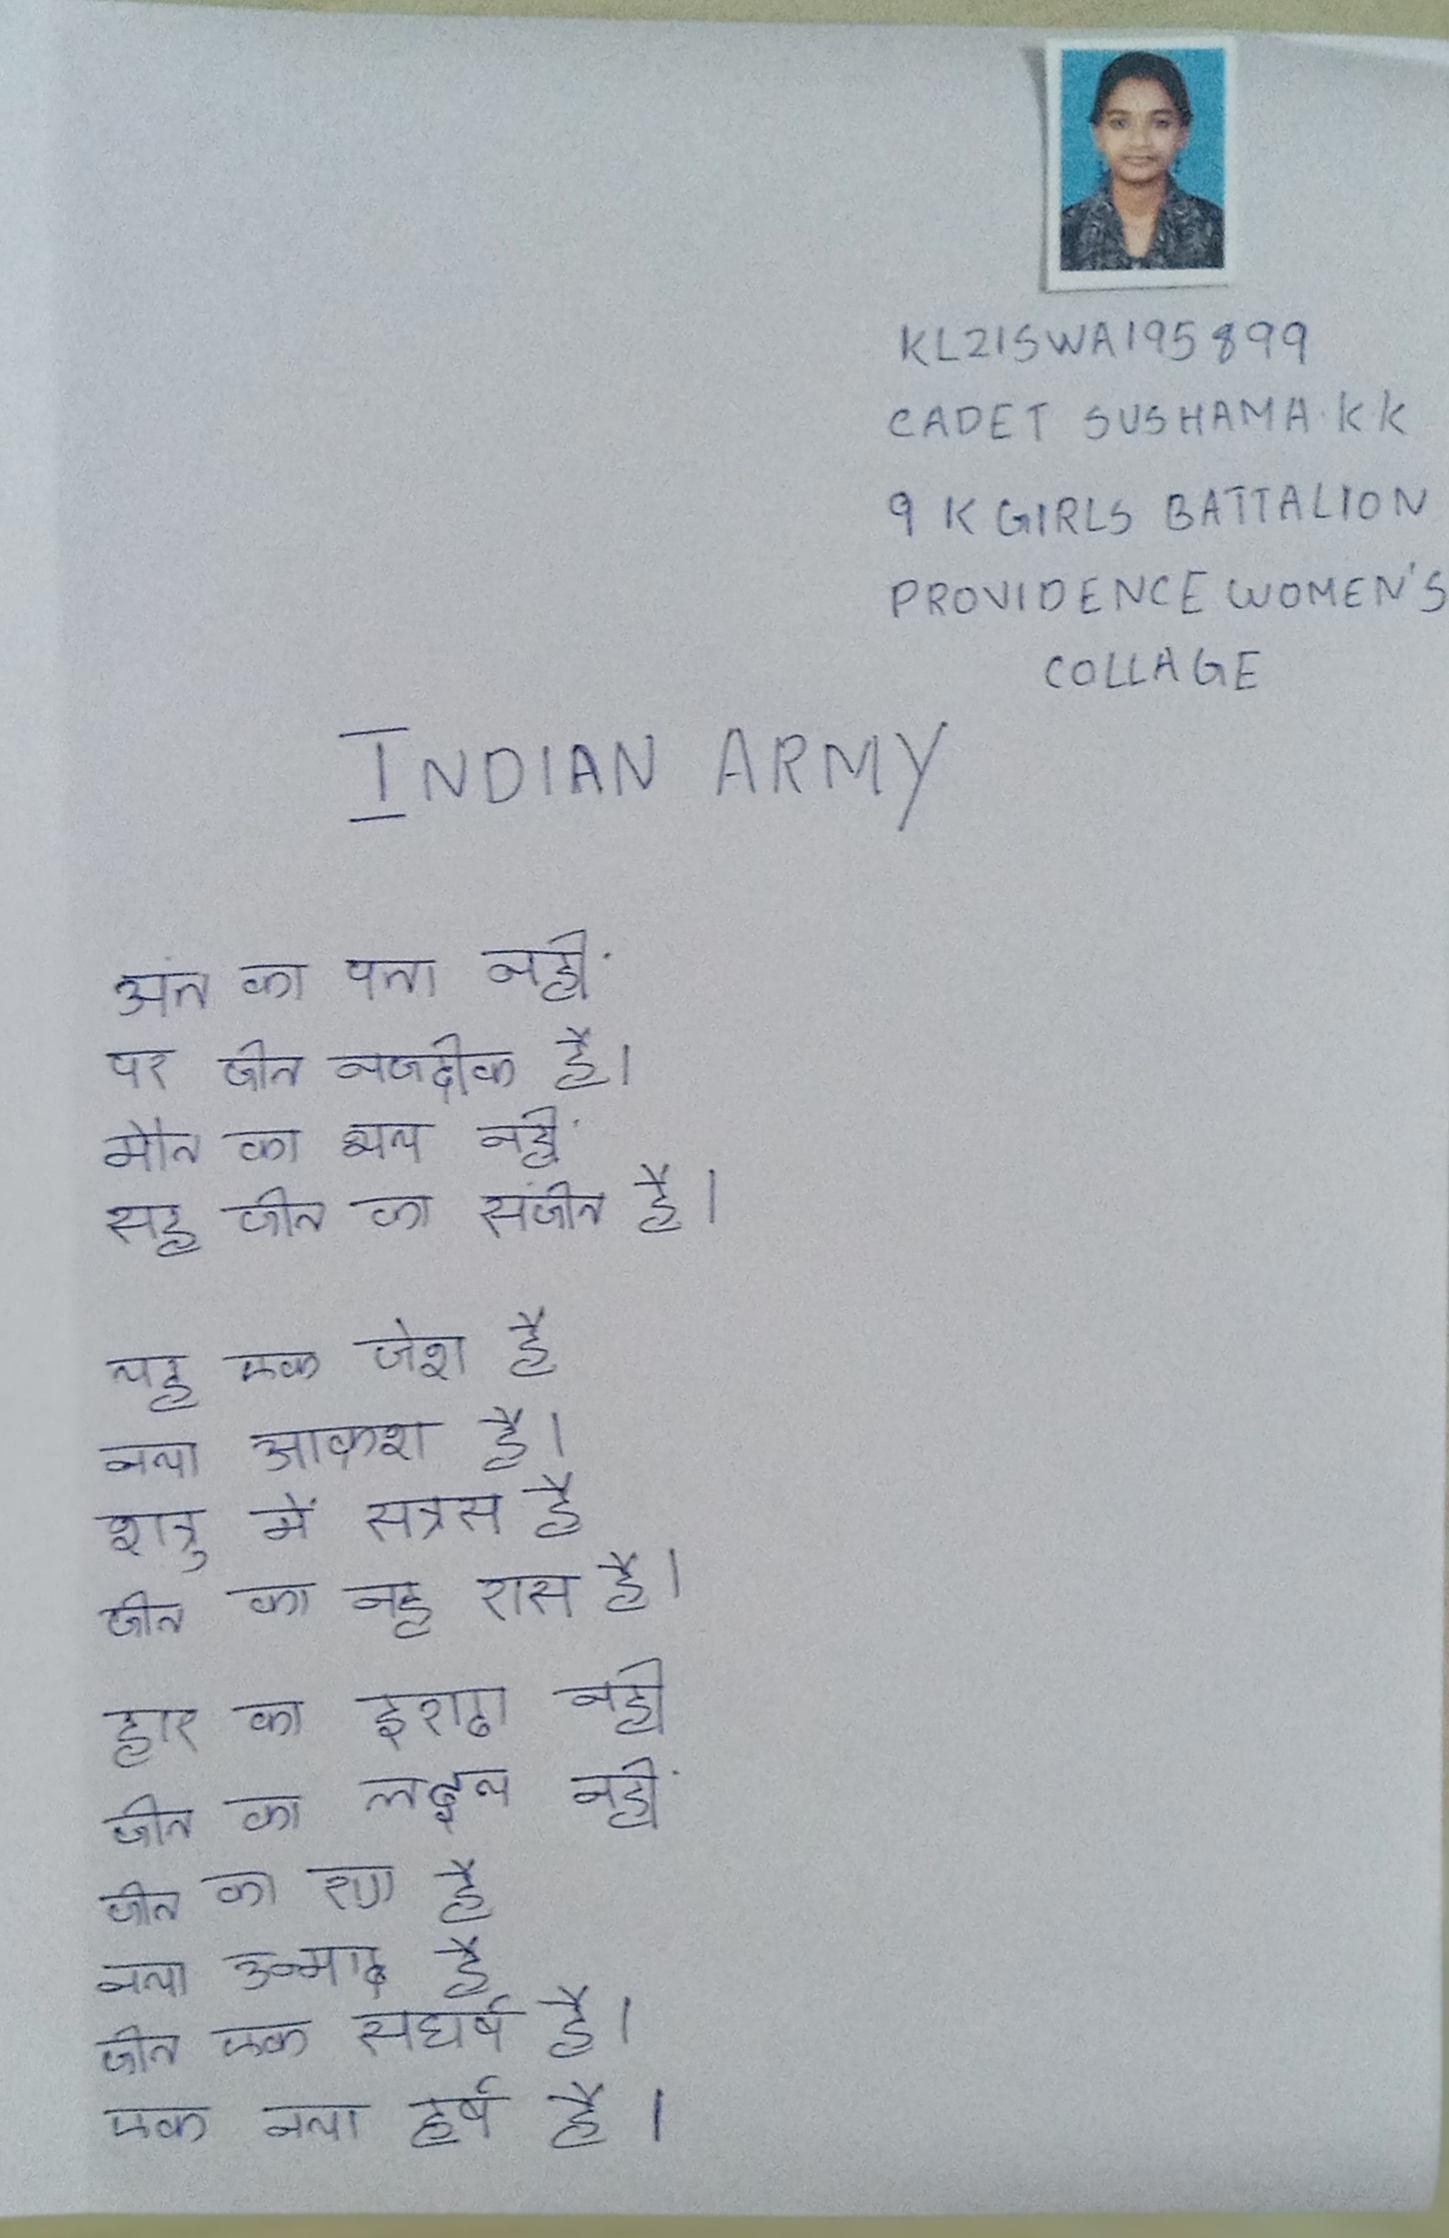 KL21SWA195899
CADET SUSHAMA.KK
9 K GIRLS BATTALION
PROVIDENCE WOMEN'S
COLLAGE
INDIAN ARMY
अंत का पता नहीं
पर जीत नजदीक है।
मौत का भय नहीं
सह जीत का संजीत है।
यह एक जेश है
नया आकश है।
शत्रु में सत्रस है
जीत का नह रास है।
हार का इरादा नही
जीत का लक्ष्य नहीं
जीत का है
नया उन्माद है
जीत एक सघर्ष है।
एक नया हर्ष है।